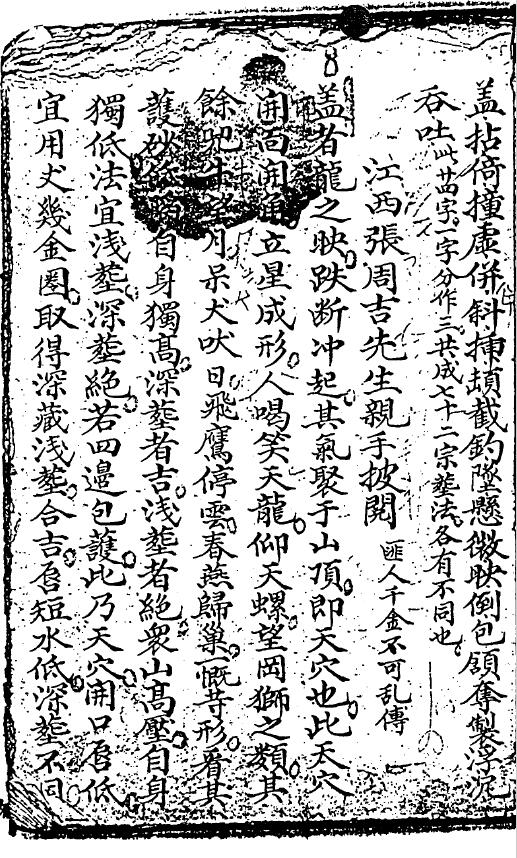 盖拈倚撞虛併斜揷頏截釣墜懸微映倒包領奪製浮泥
吞吐此廿四字一字分作三共成七十二宗塟法各有不同也
江西張周吉先生親手披閱 匪人千金不可乱傳
盖者龍之映跌断冲起其氣聚于山頂即天穴也此天穴
開面開角立星成形人喝笑天龍仰天螺望岡獅之類其
餘吧牛望月呆犬吠日飛鷹停雲春燕歸巢一慨䓁形看其
護砂自身獨髙深塟者吉浅塟者絶衆山髙壓自身
獨低法宜浅塟深塟絶若四邊包護此乃天穴開口唇低
宜用犬幾金圈取得深藏浅塟合吉唇短水低深塟不同